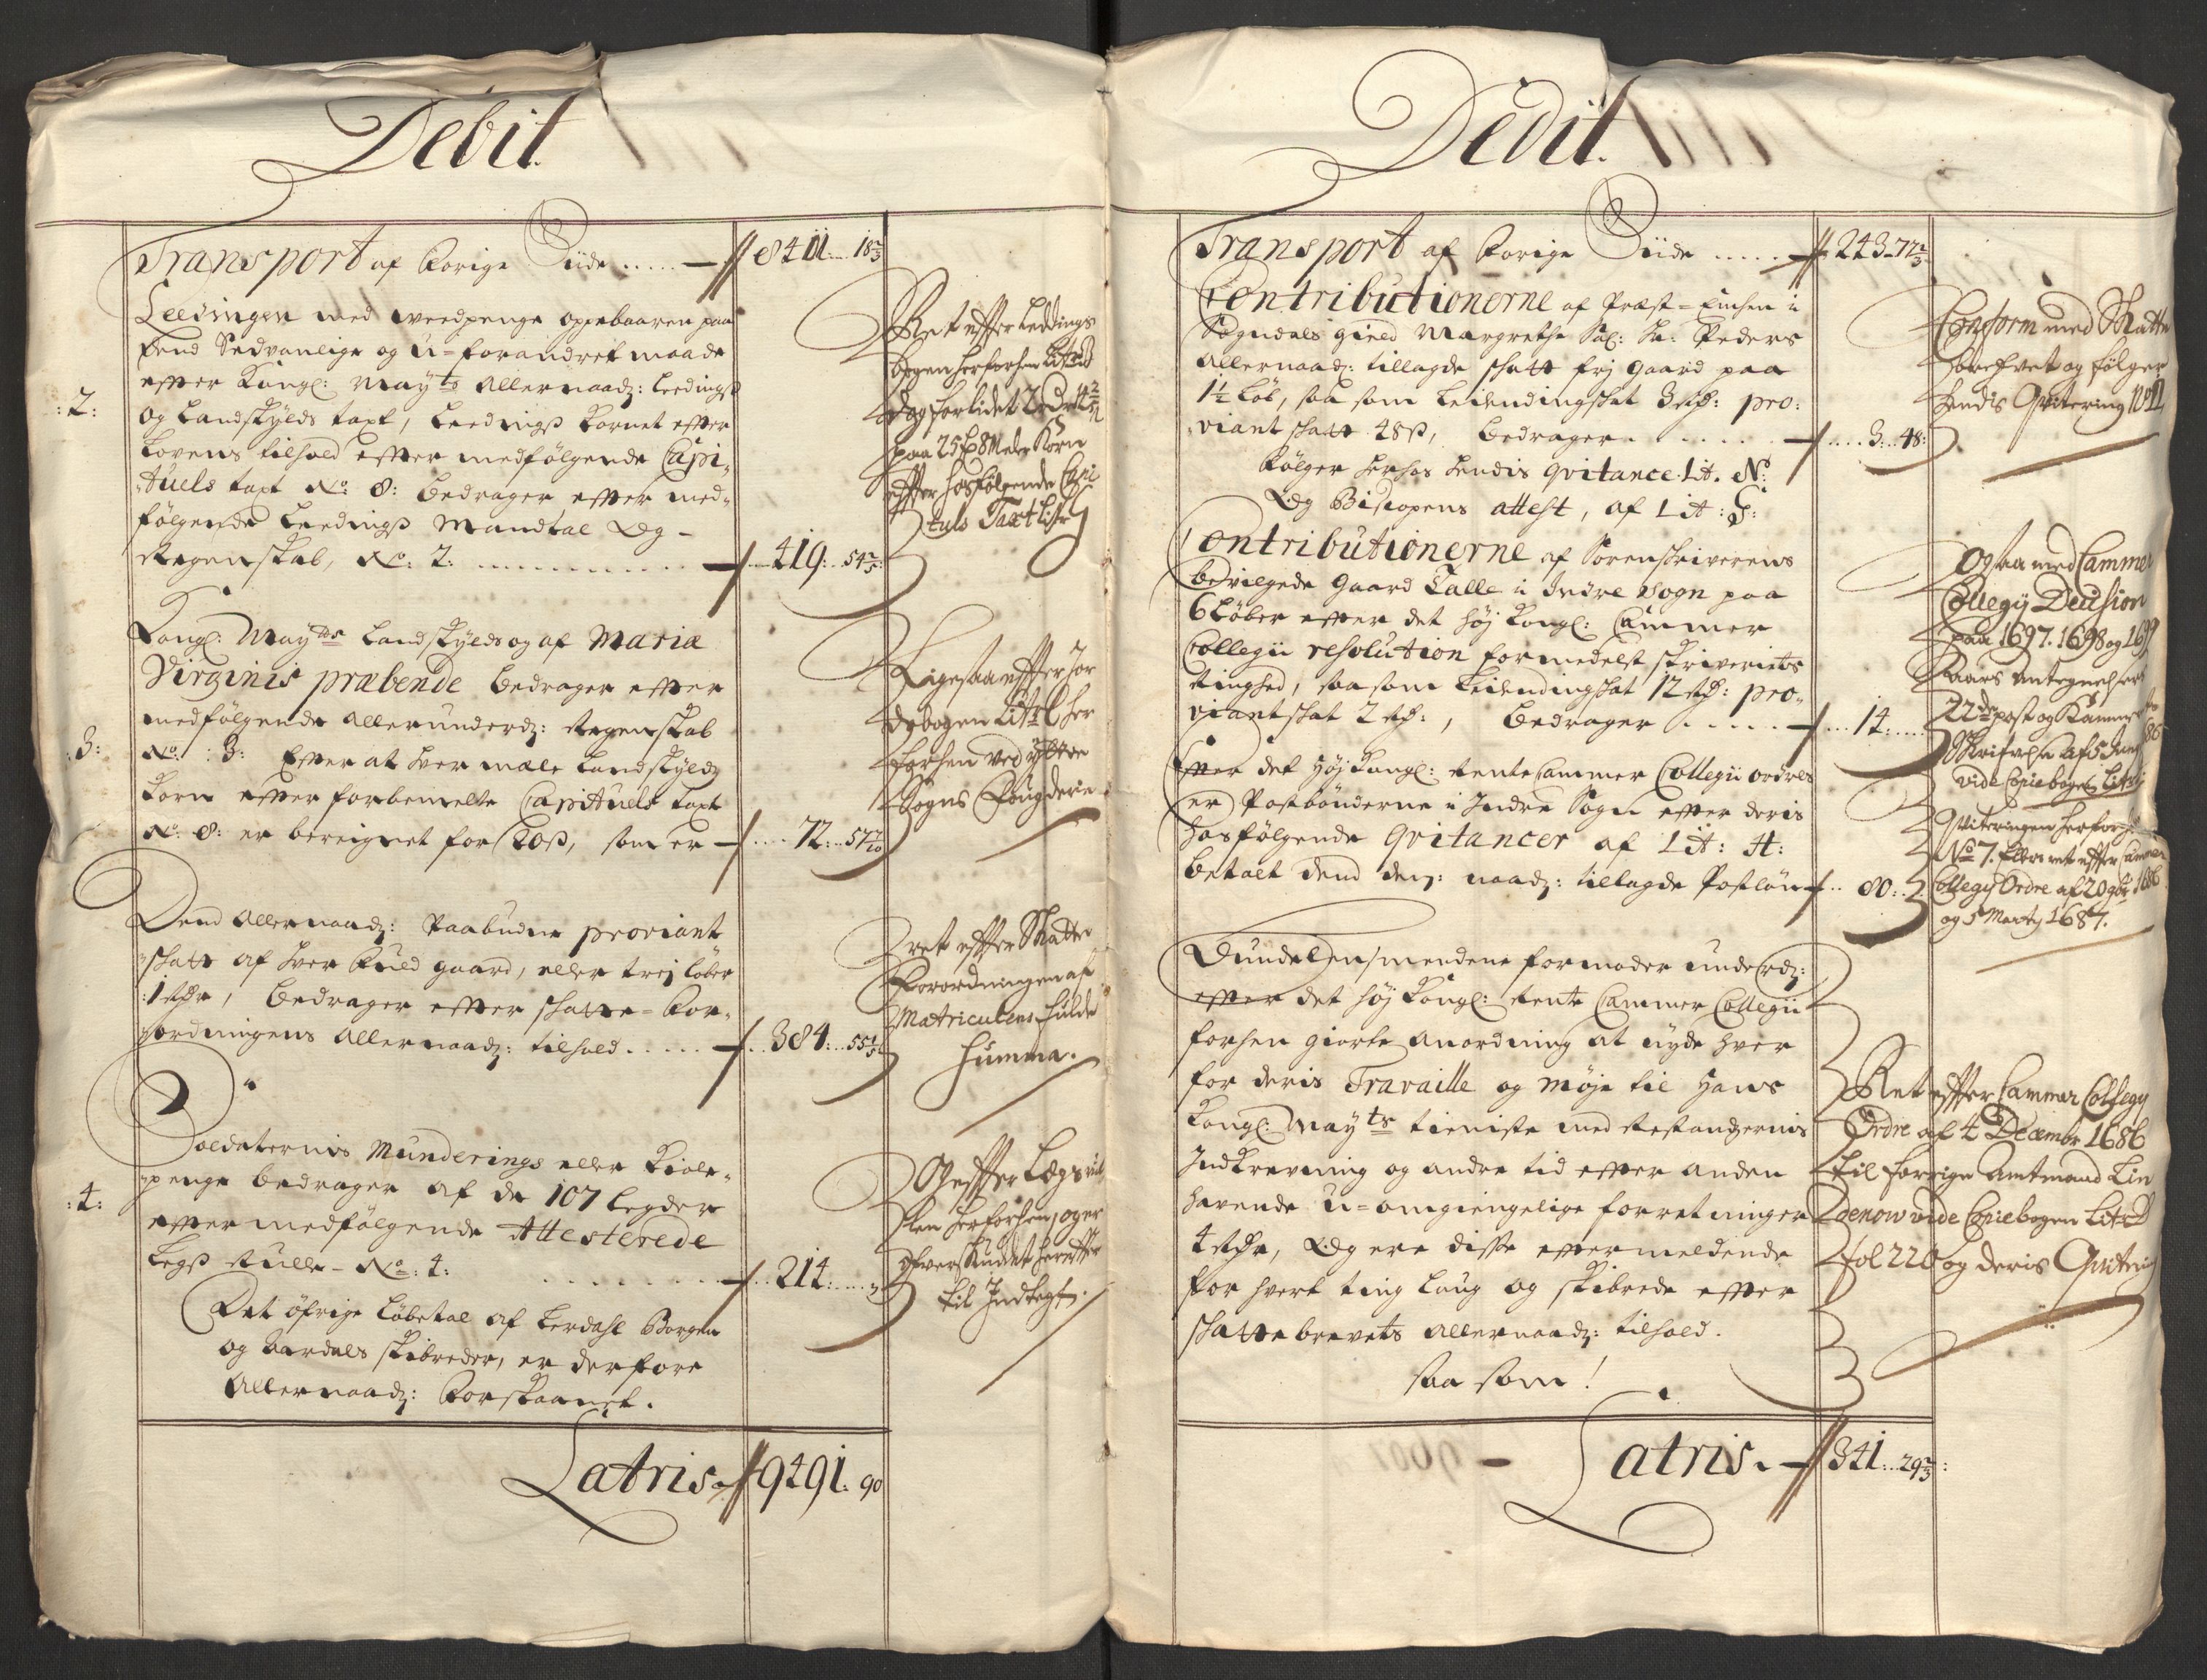 Debit.
Transport af Forige Siide ..... 8411: 18 2/3
Leedingen med weedpenge oppebaaren paa
dend Sedvanlige og u-forandret maade
efter Kongl: Mayts Allernaad: Leedings
:2: og Landskylds taxt, Leedings Kornet efter
Lovens tilhold efter medfølgende Capi,
tuels taxt No: 8: bedrager efter med-
følgende Leedings Mandtal Og -
Regenskab, No: 2: ........... 419: 54 2/5
Kongl: Mayts Landskylds og af Mariæ
Virginis præbende bedrager efter
medfølgende Allerunderd: Regenskab
:3: No: 3: Efter at hver mæle Landskylds
Korn efter forbemelte Capituels taxt
No: 8: er beregnet for 20ß, som er .... 72: 57 7/10
Dend Allernaad: Paabudne proviant
skatt af hver fuld gaard, eller trej løber
:1 rdr, bedrager efter Skatte-For,
ordningens Allernaad: tilhold ..... 384: 55 1/5
Soldaternis Munderings eller Kiole,
penge bedrager af de 107 Legder
:4: efter medfølgende Attesterede
Legs Rulle - No: 4: ........ 214: ...
Det öfrige Løbetal af Lerdahl Borgen
og Aardals skibreder, er derfore
Allernaad: Forskaanet.
Latris. 9491: 90
Ret efter Leddings
bogen herforhen Litr
Og forlidet
paa 25 8 Meler Korn
efter hosfølgende Capi
tuls Taxt Liste
Ligesaa efter Jor
debogen Littr C her
forhen ved Yttre
Sogns Fougderie
ret efter Skatte
Forordningen af
Matriculens fulde
Summa.
Og efter Lægs rul
len herforhen, og er
Overskudet herefter
til Indtegt.
Dedit.
Transport af Forige Siide ..... 243-77 2/3
Contributionerne af Præst-Enchen i
Sogndals gield Margrethe Sal: Hr: Peders
Allernaad: tillagde skatt frj gaard paa
1 1/2 Løb, saa som Leilendingskat 3 rdr: pro:
viant skatt 48ß, bedrager ...... 3: 48:
Følger herhos hendis qvitance Lit. N:
Og Biscopens attest, af Lit: S:
Contributionerne af Sorenskriverens
bevilgede Gaard Talle i Indre Sogn paa
6 Løber efter det høj Kongl: Cammer
Collegii resolution formedelst skriveriets
ringhed, saa som Leilendingskat 12 rdr: pro,
viant skat 2 rdr:, bedrager ..... 14: ....
Efter det Høj Kongl: Rente Cammer Collegii ordres
er Postbönderne i Indre Sogn efter deris
hosfølgende qvitancer af Lit: H:
betalt dend dem: naad: tillagde Postløn .. 80:
Bundelensmendene formoder underd:
efter det høj Kongl: Rente Cammer Collegii
forhen giorte anordning at nyde hver
for deris Travaille og møje til Hans
Kongl: Mayts tieniste med Restanzernis
Indkrevning og andre tid efter anden
havende u-omgiengelige forretninger
4 rdr, Og ere disse eftermeldende
for hvert ting laug og skibrede efter
skattebrevets Allernaad: tilhold.
saa som!
Latris. 341: 29 2/3:
Conform med Skatte
brefvet og følger
hendis Qvitering No 11
Ogsaa med Cammer
Collegij Decision
paa 1697. 1698 og 1699
Aars Antegnelsers
22de post og Kammer
Skrifvelse af 5 Junij 86
vide Copiebogen Litr
Qviteringen herforhen
No 7. Ellers ret efter Cammer
Collegij Ordre af 20 gbr 1686
og 5 Martij 1687.
Ret efter Cammer Collegij
Ordre af 4 Decembr 1686
til forrige Amtmand Lin
denow vide Copiebogen Litr
fol 220 og deris Qviterin